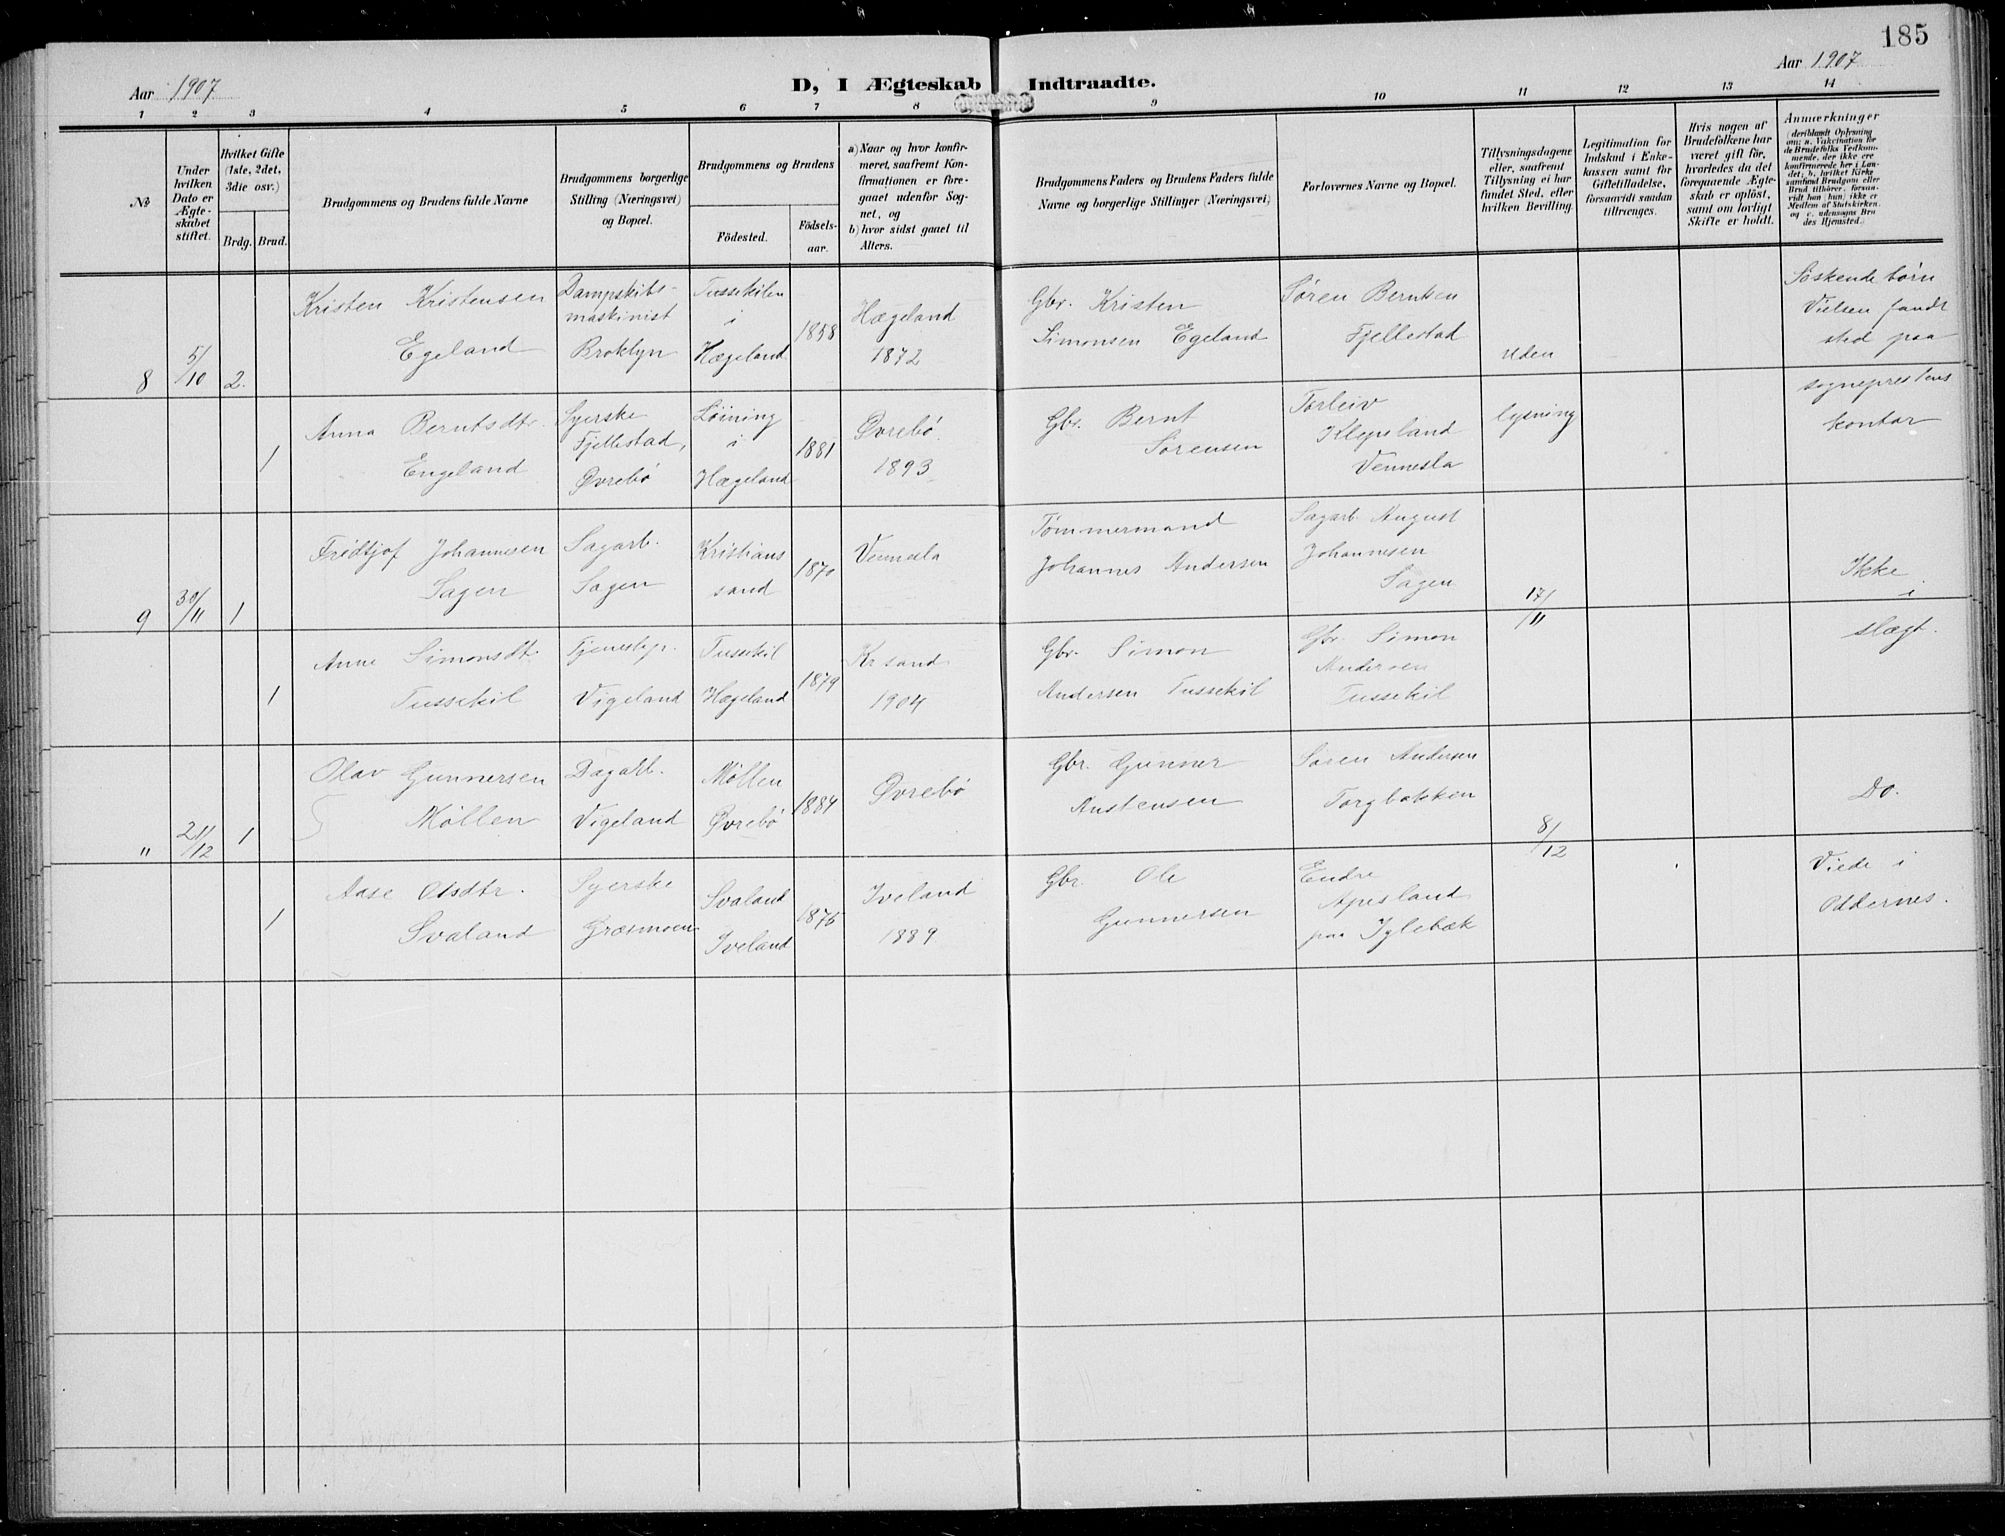 185
Aar 1907
D, I Ægteskab Indtraadte.
Aar 1907
1 2 3 4 5 6 7 8 9 10 11 12 13 14
No
Under hvilken Dato er Ægteskabet stiftet.
Hvilket Gifte (1ste, 2det, 3die osv.)
Brdg. Brud.
Brudgommens og Brudens fulde Navne
Brudgommens borgerlige Stilling (Næringsvei) og Bopæl.
Brudgommens og Brudens
Födested. Födselsaar.
a) Naar og hvor konfirmeret, saafremt Konfirmationen er foregaaet udenfor Sognet, og
b) hvor sidst gaaet til Alters.
Brudgommens Faders og Brudens Faders fulde Navne og borgerlige Stillinger (Næringsvei)
Forlovernes Navne og Bopæl.
Tillysningsdagene eller, saafremt Tillysning ei har fundet Sted, efter hvilken Bevilling
Legitimation for Indskud i Enkekassen samt for Giftetilladelse, forsaavidt saadan tiltrænges.
Hvis nogen af Brudefolkene har været gift för, hvorledes da det foregaaende Ægteskab er oplöst, samt om lovligt Skifte er holdt.
Anmærkninger
(deriblandt Oplysning om: a. Vakcination for de Brudefolks Vedkommende, der ikke ere konfirmerede her i Landet; b. hvilket Kirkesamfund Brudgom eller Brud tilhörer, forsavidt han (hun) ikke er Medlem af Statskirken, og c. udensogns Brudes Hjemsted.)
8 5/10 2.
Kristen Kristensen
Egeland
Dampskibs-
maskinist
Broklyn
Tussekilen
i
Hægeland
1858
Hægeland
1872
Gbr. Kristen
Simonsen Egeland
Søren Berntsen
Fjellestad
uden
Søskendebørn
Vielsen fandt
sted paa
1
Anna Berntsdtr.
Engeland
Syerske
Fjellestad,
Øvrebö
Löining
i
Hægeland
1881
Øvrebö.
1893
Gbr. Bernt
Sörensen
Torleiv
Klepsland
Vennesla
lysning
sogneprestens
kontor
9 30/11 1
Fredtjof Johannesen
Sagen
Sagarb.
Sagen
Kristians
sand
1870
Vennesla
Tömmermand
Johannes Andersen
Sagarb. August
Johannesen
Sagen
17/11
Ikke
i
slægt.
1
Anne Simonsdtr
Tussekil
Tjenestep.
Vigeland
Tussekil
Hægeland
1879
Kr sand
1904
Gbr. Simon
Andersen Tussekil
Gbr. Simon
Andersen
Tussekil
" 21/12 1
Olav Gunnersen
Möllen
Dagarb.
Vigeland
Möllen
Øvrebö
1884
Øvrebö
Gbr. Gunner
Austensen
Søren Andersen
Torgbakken
8/12
Do.
1
Aase Olsdtr.
Svaland
Syerske
Græsmoen
Svaland
Iveland
1875
Iveland
1889
Gbr. Ole
Gunnersen
Endre
Apesland
paa Iglebæk
Viede i
Oddernes.